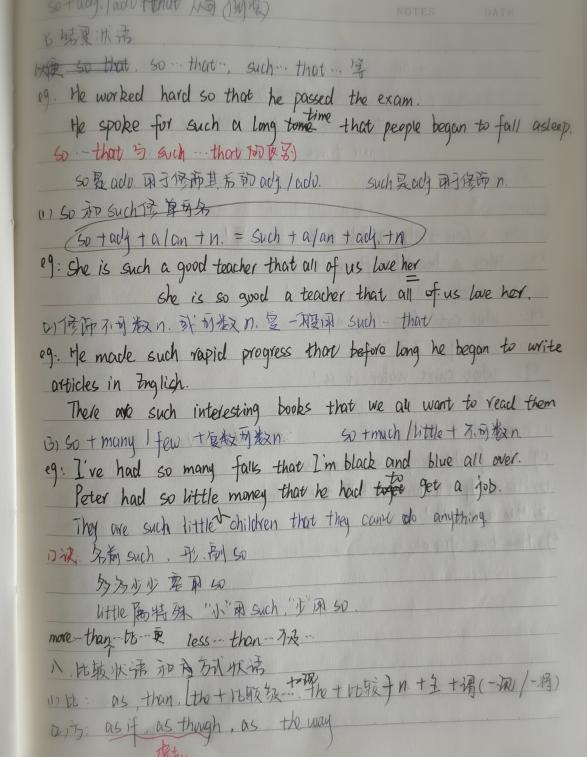 NOTES DATE
so+adj./adv that 从句
结果状语
so that, so…that…, such…that…等
eg. He worked hard so that he passed the exam.
He spoke for such a long time that people began to fall asleep.
so…that 与 such…that 的区别
so是adv. 用于修饰其后的adj./adv. such是adj 用于修饰n.
(1) so 和 such修单可名
so+adj+a/an+n. = such+a/an+adj.+n
eg: She is such a good teacher that all of us love her
she is so good a teacher that all of us love her.
(2) 修饰不可数n. 或可数n.复 一般用 such…that
eg. He made such rapid progress that before long he began to write
articles in English.
There are such interesting books that we all want to read them
(3) so+many/few+复数可数n so+much/little+不可数n
eg: I've had so many falls that I'm black and blue all over.
Peter had so little money that he had to get a job.
They are such little children that they can't do anything
口诀. 名前such, 形,副so
多多少少要用so
little属特殊 "小"用such, "少"用so.
more…than…比…更 less…than…不及…
八. 比较状语和方式状语
(1) 比: as, than, the+比较级… the+比较+n+主+谓(一现/一将)
(2) 方: as if, as though, as the way